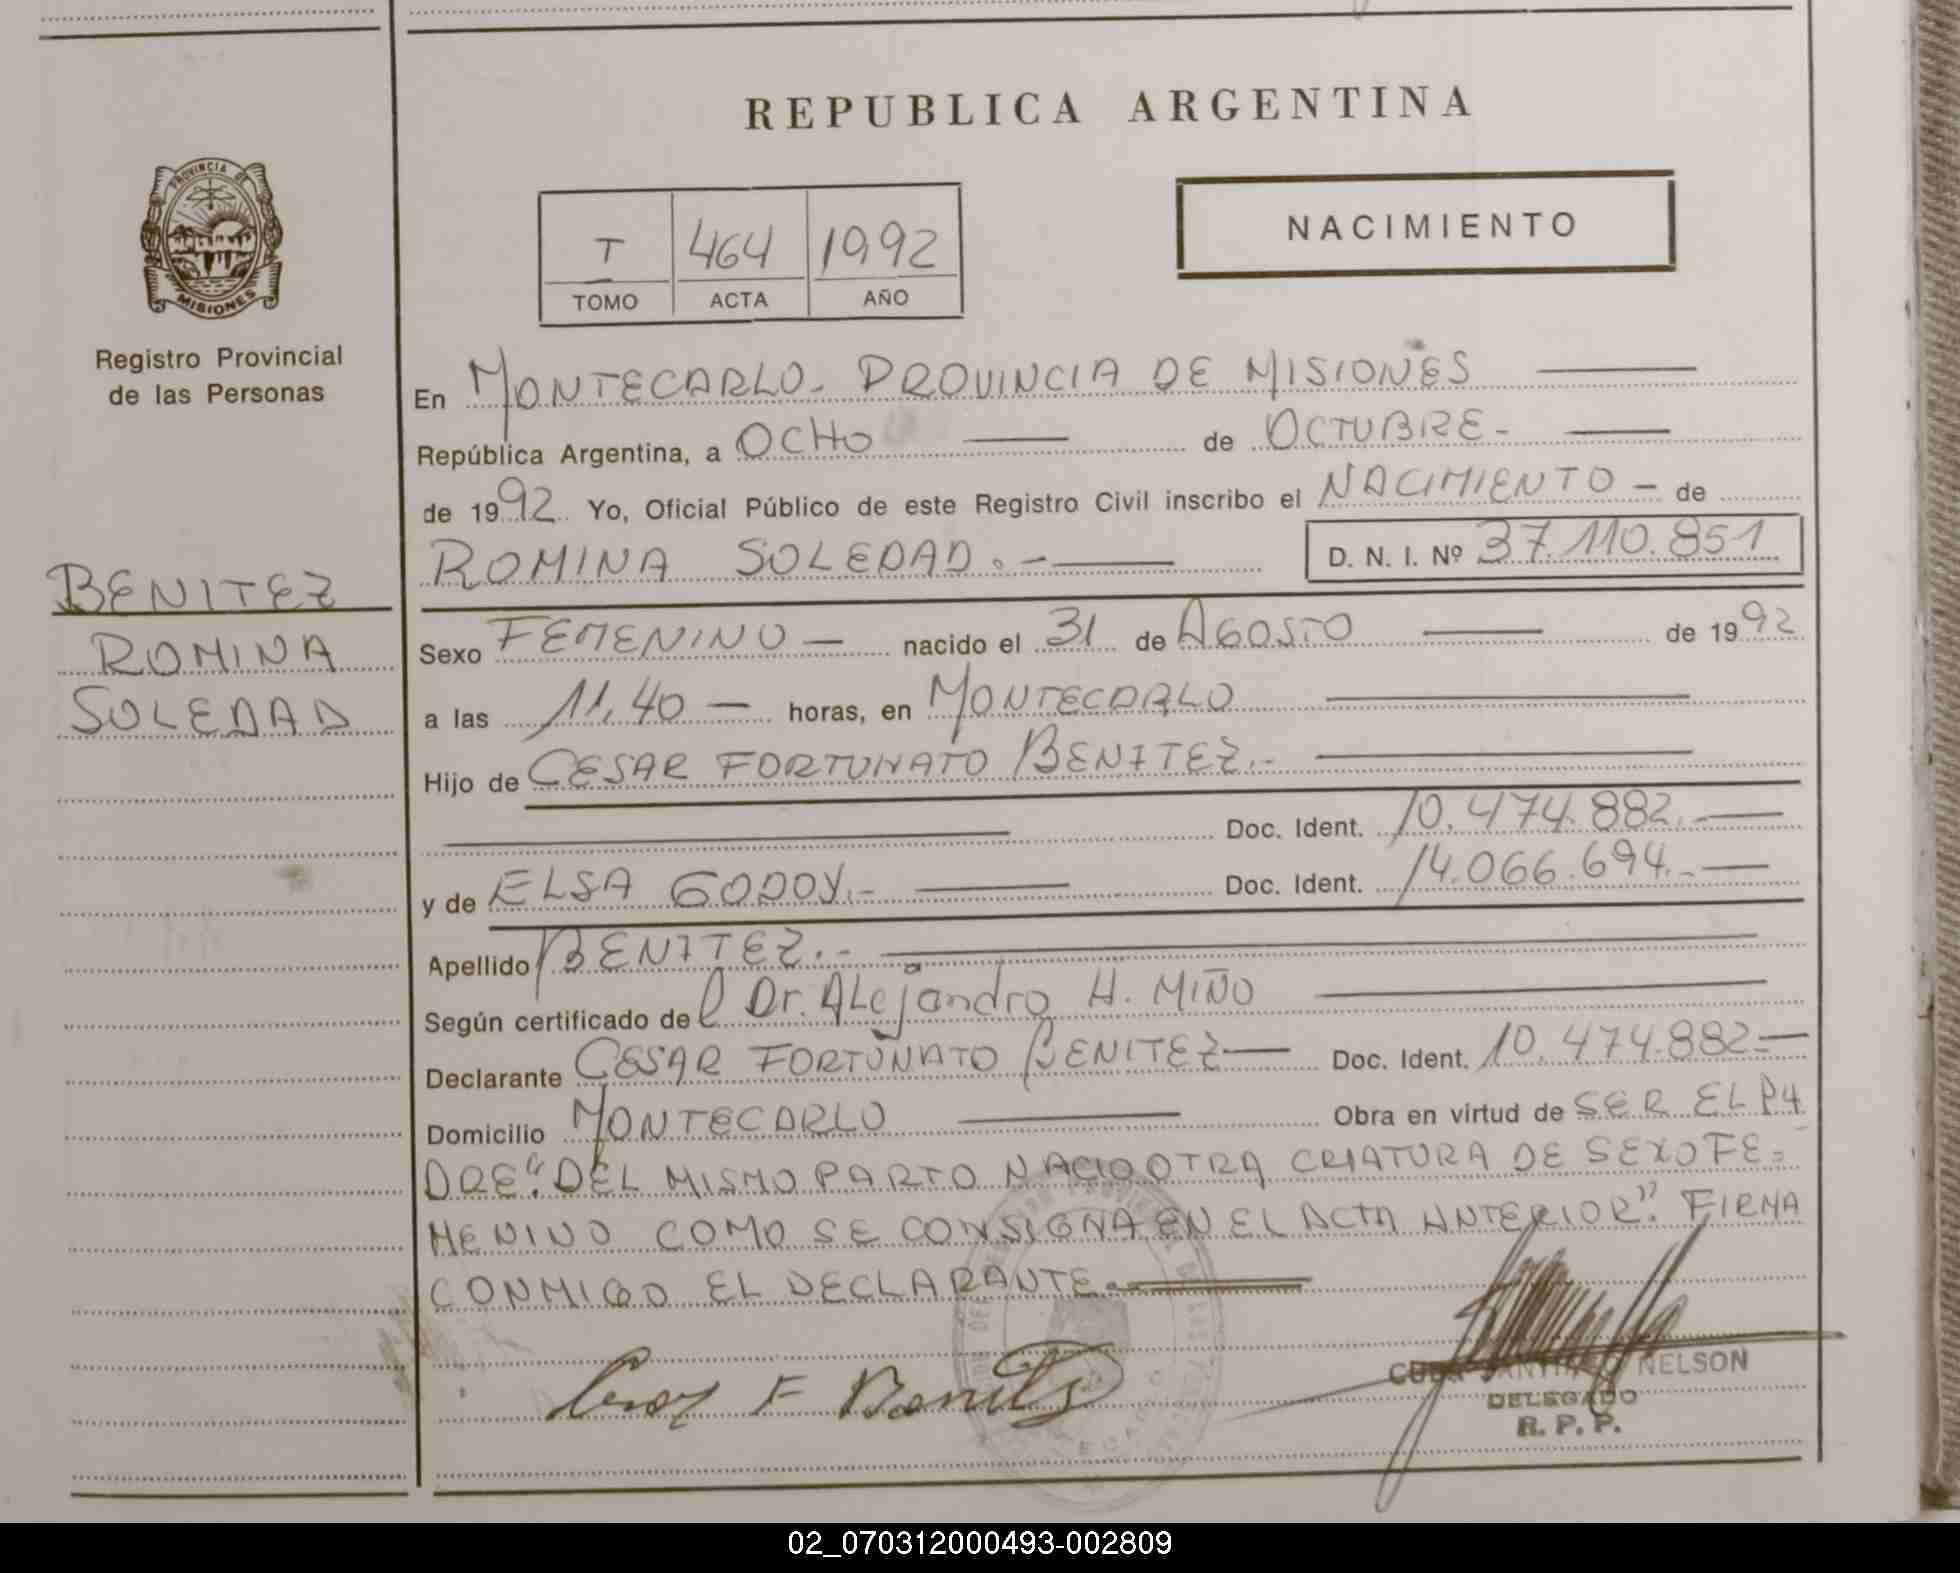 REPUBLICA ARGENTINA
PROVINCIA DE
MISIONES
Registro Provincial
de las Personas
T 464 1992
TOMO ACTA AÑO
NACIMIENTO
En MONTECARLO. PROVINCIA DE MISIONES
República Argentina, a OCHO de OCTUBRE.-
de 1992 Yo, Oficial Público de este Registro Civil inscribo el NACIMIENTO - de
ROMINA SOLEDAD.- D. N. I. Nº 37.110.851
BENITEZ
ROMINA
SOLEDAD
Sexo FEMENINO - nacido el 31 de AGOSTO de 1992
a las 11,40 - horas, en MONTECARLO
Hijo de CESAR FORTUNATO BENITEZ.-
Doc. Ident. 10.474.882.-
y de ELSA GODOY.- Doc. Ident. 14.066.694.-
Apellido BENITEZ.-
Según certificado del Dr. ALejandro H. MIÑO
Declarante CESAR FORTUNATO BENITEZ Doc. Ident. 10.474.882-
Domicilio MONTECARLO Obra en virtud de SER EL PA
DRE. "DEL MISMO PARTO NACIO OTRA CRIATURA DE SEXO FE=
MENINO COMO SE CONSIGNA EN EL ACTA ANTERIOR". FIRMA
CONMIGO EL DECLARANTE.
Cesar F Benitez
NELSON
DELEGADO
R. P. P.
02_070312000493-002809